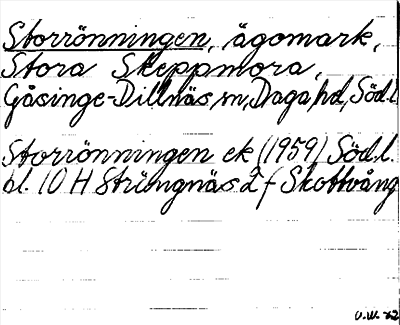 Storrönningen, ägomark,
Stora Skeppmora,
Gåsinge-Dillnäs sn, Daga hd, Södl.
Storrönningen ek (1959) Söd.l.
bl. 10 H Strängnäs 2 f Skottvång
U.W. 62